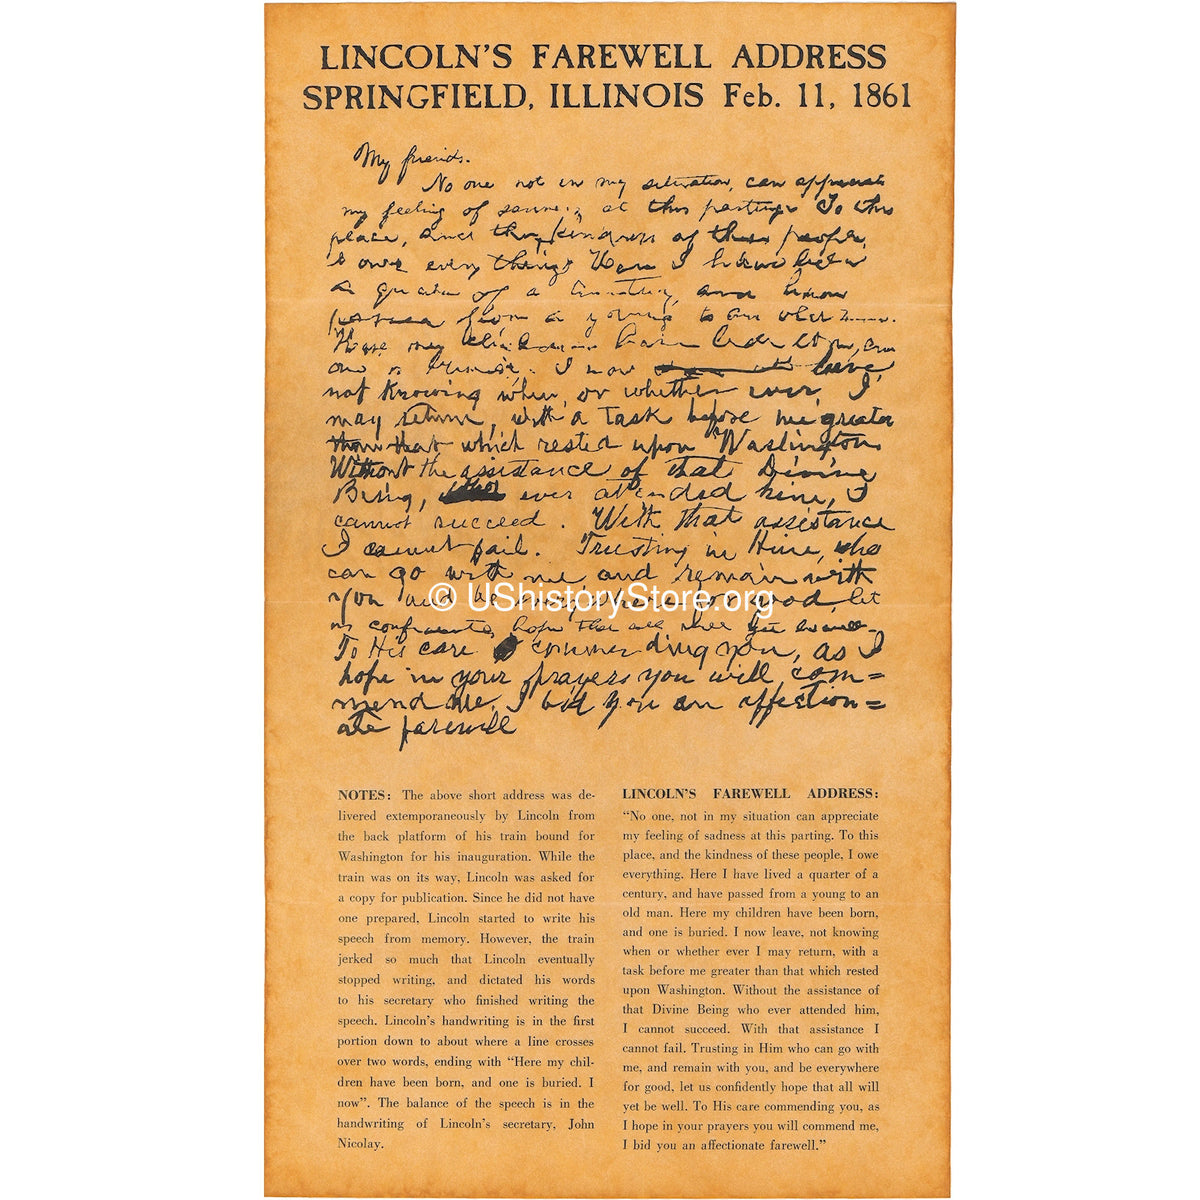 LINCOLN'S FAREWELL ADDRESS
SPRINGFIELD, ILLINOIS Feb. 11, 1861
My friends.
No one not in my situation, can appreciate
my feeling of sadness at this parting. To this
place, and the kindness of these people,
I owe every thing. Here I have lived
a quarter of a century, and have
passed from a young to an old man.
Here my children have been born, and
one is buried. I now leave,
not knowing when, or whether ever, I
may return, with a task before me greater
than that which rested upon Washington
Without the assistance of that Divine
Being, who ever attended him, I
cannot succeed. With that assistance
I cannot fail. Trusting in Him, who
can go with me, and remain with
you and be every where for good let
us confidently hope that all will yet be well
To His care commending you, as I
hope in your prayers you will com=
mend me, I bid you an affection=
ate farewell
© UShistoryStore.org
NOTES: The above short address was de-
livered extemporaneously by Lincoln from
the back platform of his train bound for
Washington for his inauguration. While the
train was on its way, Lincoln was asked for
a copy for publication. Since he did not have
one prepared, Lincoln started to write his
speech from memory. However, the train
jerked so much that Lincoln eventually
stopped writing, and dictated his words
to his secretary who finished writing the
speech. Lincoln's handwriting is in the first
portion down to about where a line crosses
over two words, ending with "Here my chil-
dren have been born, and one is buried. I
now". The balance of the speech is in the
handwriting of Lincoln's secretary, John
Nicolay.
LINCOLN'S FAREWELL ADDRESS:
"No one, not in my situation can appreciate
my feeling of sadness at this parting. To this
place, and the kindness of these people, I owe
everything. Here I have lived a quarter of a
century, and have passed from a young to an
old man. Here my children have been born,
and one is buried. I now leave, not knowing
when or whether ever I may return, with a
task before me greater than that which rested
upon Washington. Without the assistance of
that Divine Being who ever attended him,
I cannot succeed. With that assistance I
cannot fail. Trusting in Him who can go with
me, and remain with you, and be everywhere
for good, let us confidently hope that all will
yet be well. To His care commending you, as
I hope in your prayers you will commend me,
I bid you an affectionate farewell."